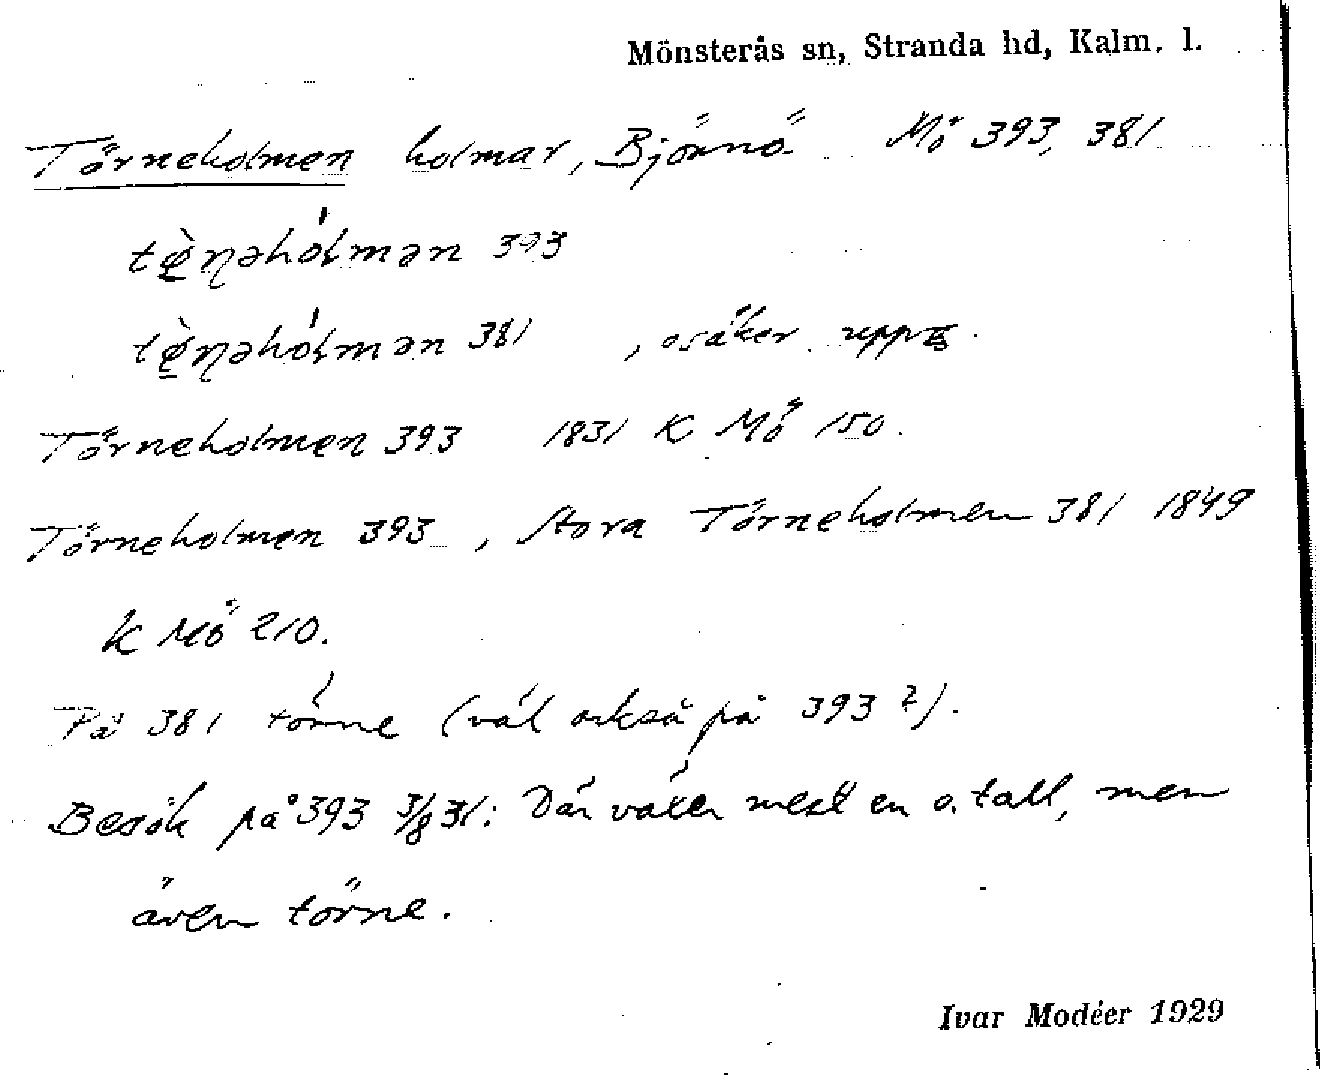 Mönsterås sn, Stranda hd, Kalm. l.
Törneholmen holmar, Björnö Mö 393, 381
tø̀ɳəhólmən 393
tø̀ɳəhólmən 381 , osäker uppg.
Törneholmen 393 1831 K Mö 150.
Törneholmen 393 , Stora Törneholmen 381 1849
K Mö 210.
På 381 törne (väl också på 393?).
Besök på 393 3/8 31: Där växer mest en o. tall, men
även törne.
Ivar Modéer 1929